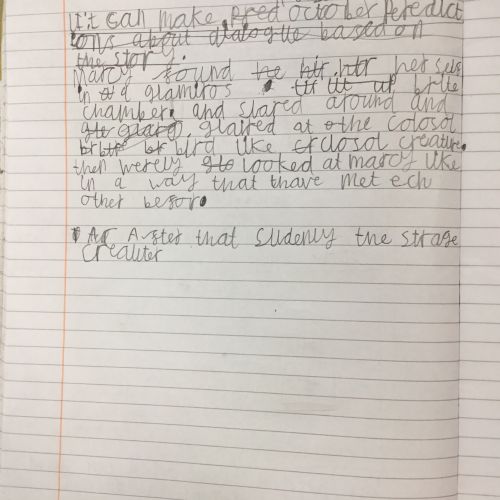 I can make pred october Peredict
ions about dialogue based on
the story.
Marcy found the hir hir her self
in a glamiros lit up brite
chamber and stared around and
glared at the colosol
bird like clolsol creature.
then werely looked at marcy like
in a way that thave met ech
other befor.
After that sudenly the strage
creauter